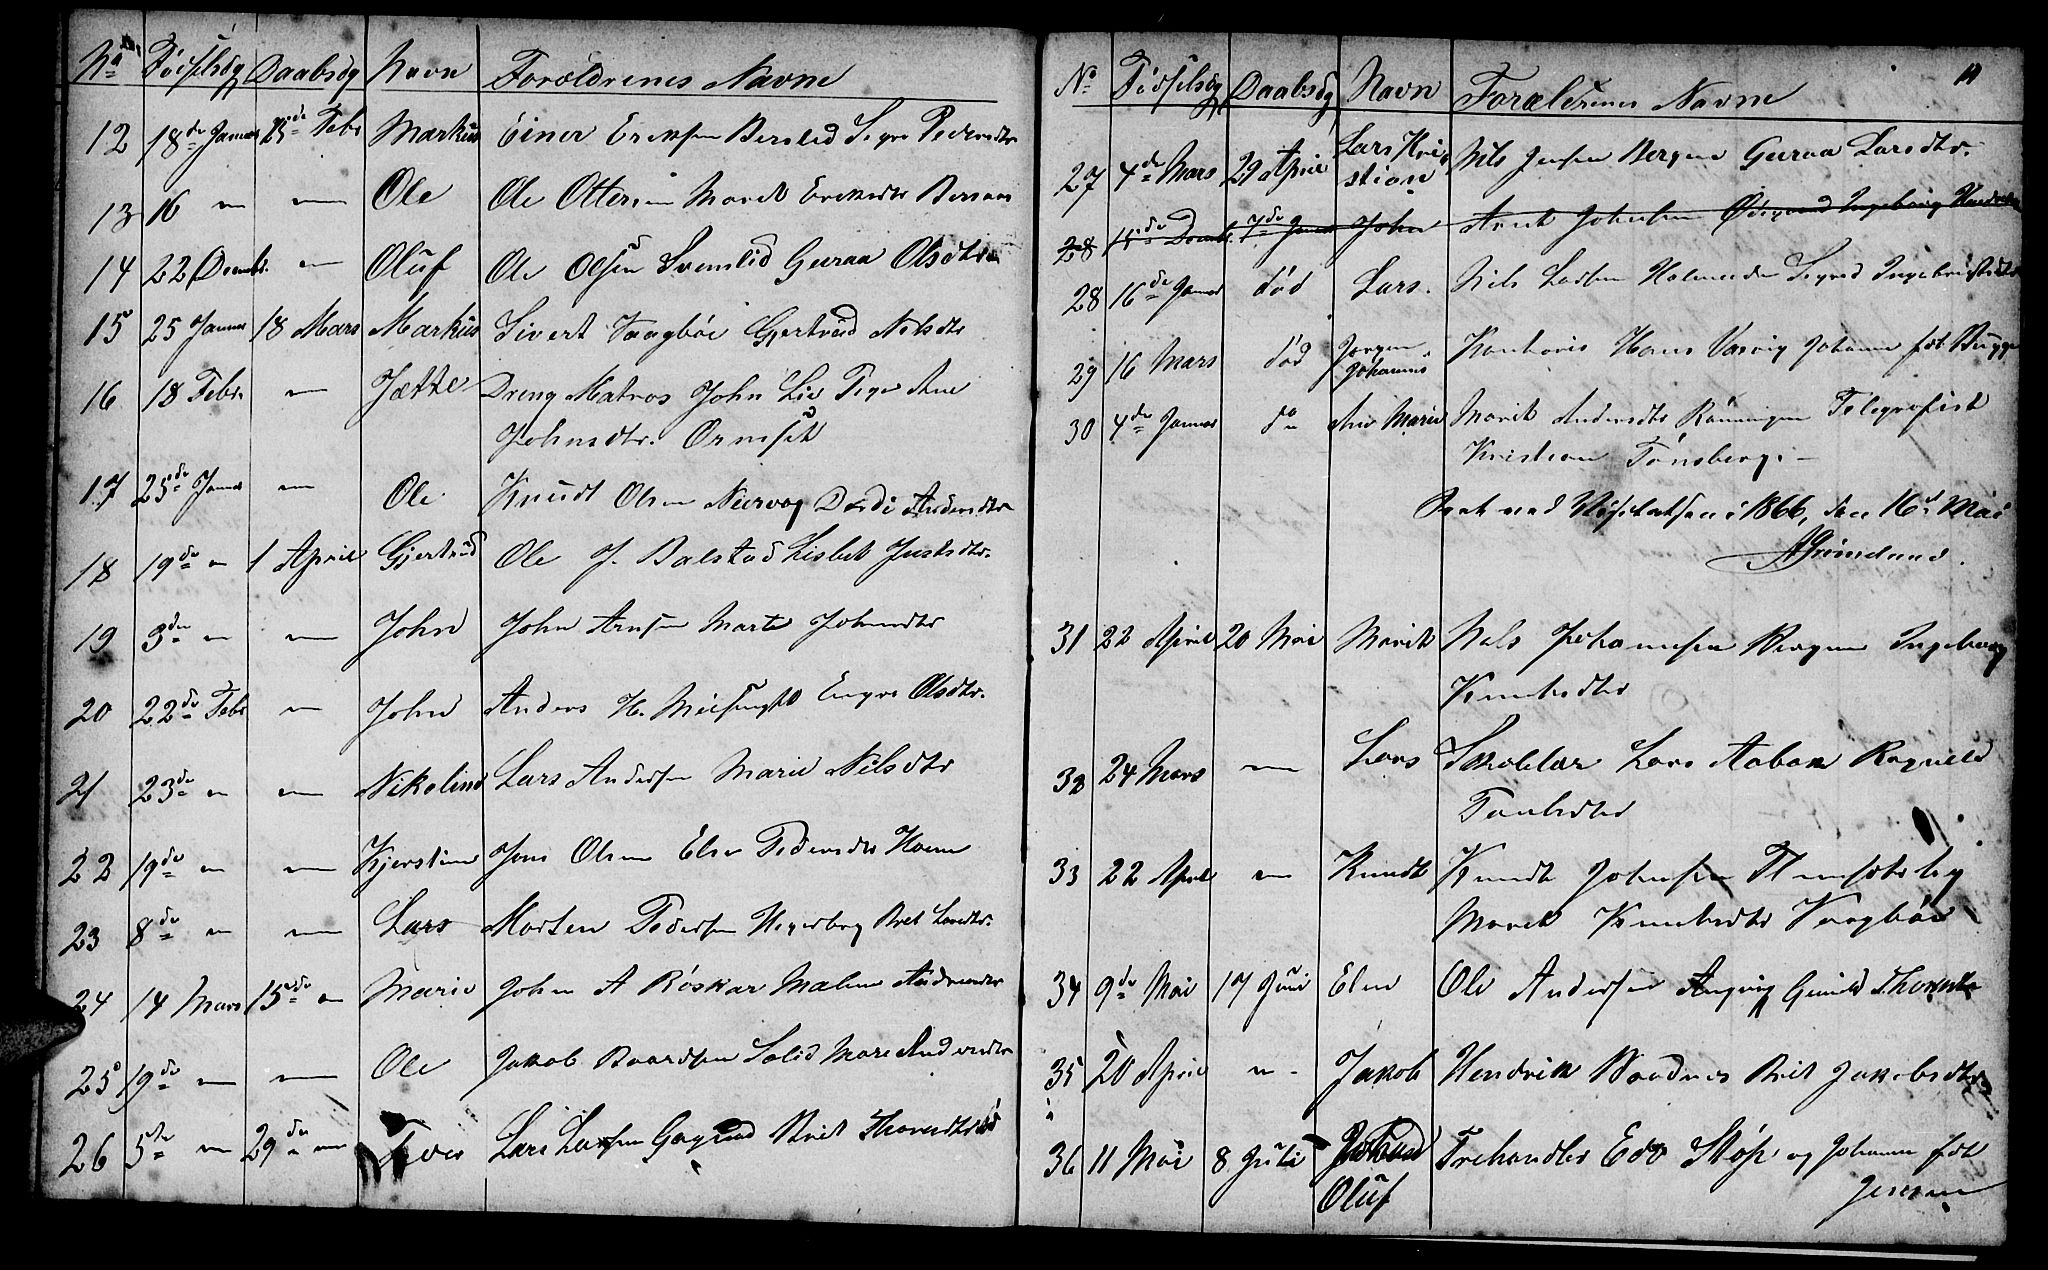 No Fødselsdg Daabsdg Navn Forældrenes Navne
12 18de Januar 25de Febr Markus Einer Eriksen Berslid Segre Pedersdtr
13 16 — — Ole Ole Ottersen Maret Eriksdtr
14 22 Decembr. — Oluf Ole Olsen Svenslid Guraa Olsdtr
15 25 Januar 18 Mars Markus Sivert Vaagbøe Gjertrud Nilsdtr
16 18 Febr. — Jætte Dreng Matros John Lie Pige Ane
Johnsdtr. Ormset
17 25de Januar — Ole Knudt Olsen Nervog Dordi Andersdtr
18 19de — 1 April Gjertrud Ole J. Balstad Lisbet Justsdtr.
19 3de — — John John Arnsen Marte Johnsdtr
20 22de Febr — John Anders H. Meisingset Engre Olsdtr.
21 23de — — Nikoline Lars Andersen Marie Nilsdtr
22 19de — — Kjerstine Jens Olsen Else Pedersdtr
23 8de — — Lars Morten Pedersen Hegerberg Bret Larsdtr.
24 14 Mars 15de — Marie John A Røskar Malene Andersdtr
25 19de — — Ole Jakob Baardsen Solid Mare Andersdtr
26 5te — 29de — Lars Larsen Bret Thoresdtr
No Fødselsdg Daabsdg Navn Forældrenes Navne
27 4de Mars 29 April Lars Kri-
stian Nils Jensen Bergem Guraa Larsdtr.
28 John Arnt Johnsen Ødegaard Ingeborg
28 16de Januar død Lars. Nils Ladsen Holmeide Segred Ingebrigtsdtr
29 16 Mars død Jørgen
Johannes Hans Varvig Johanne født Bugge
30 4de Januar do Ane Marie Marit Andersdtr Rønningen Telegrafist
Kristian Tønsberg. —
1866, den 16de Mai
31 22 April 20 Mai Marit Nils Johannesen Bergem Ingeborg
Knudsdtr
32 24 Mars — Lars Skolelær Lars Aaban Ragnild
33 22 April — Knudt Knudt Johnsen
Maret Knudsdtr Vaagbøe
34 9de Mai 17 Juni Elen Ole Andersen Angvig Gunild
35 20 April — Jakob Hendrik Bret Jakobsdtr
36 11 Mai 8 Juli Johan
Oluf Trehandler Edv Støp og Johanne født
Jensen